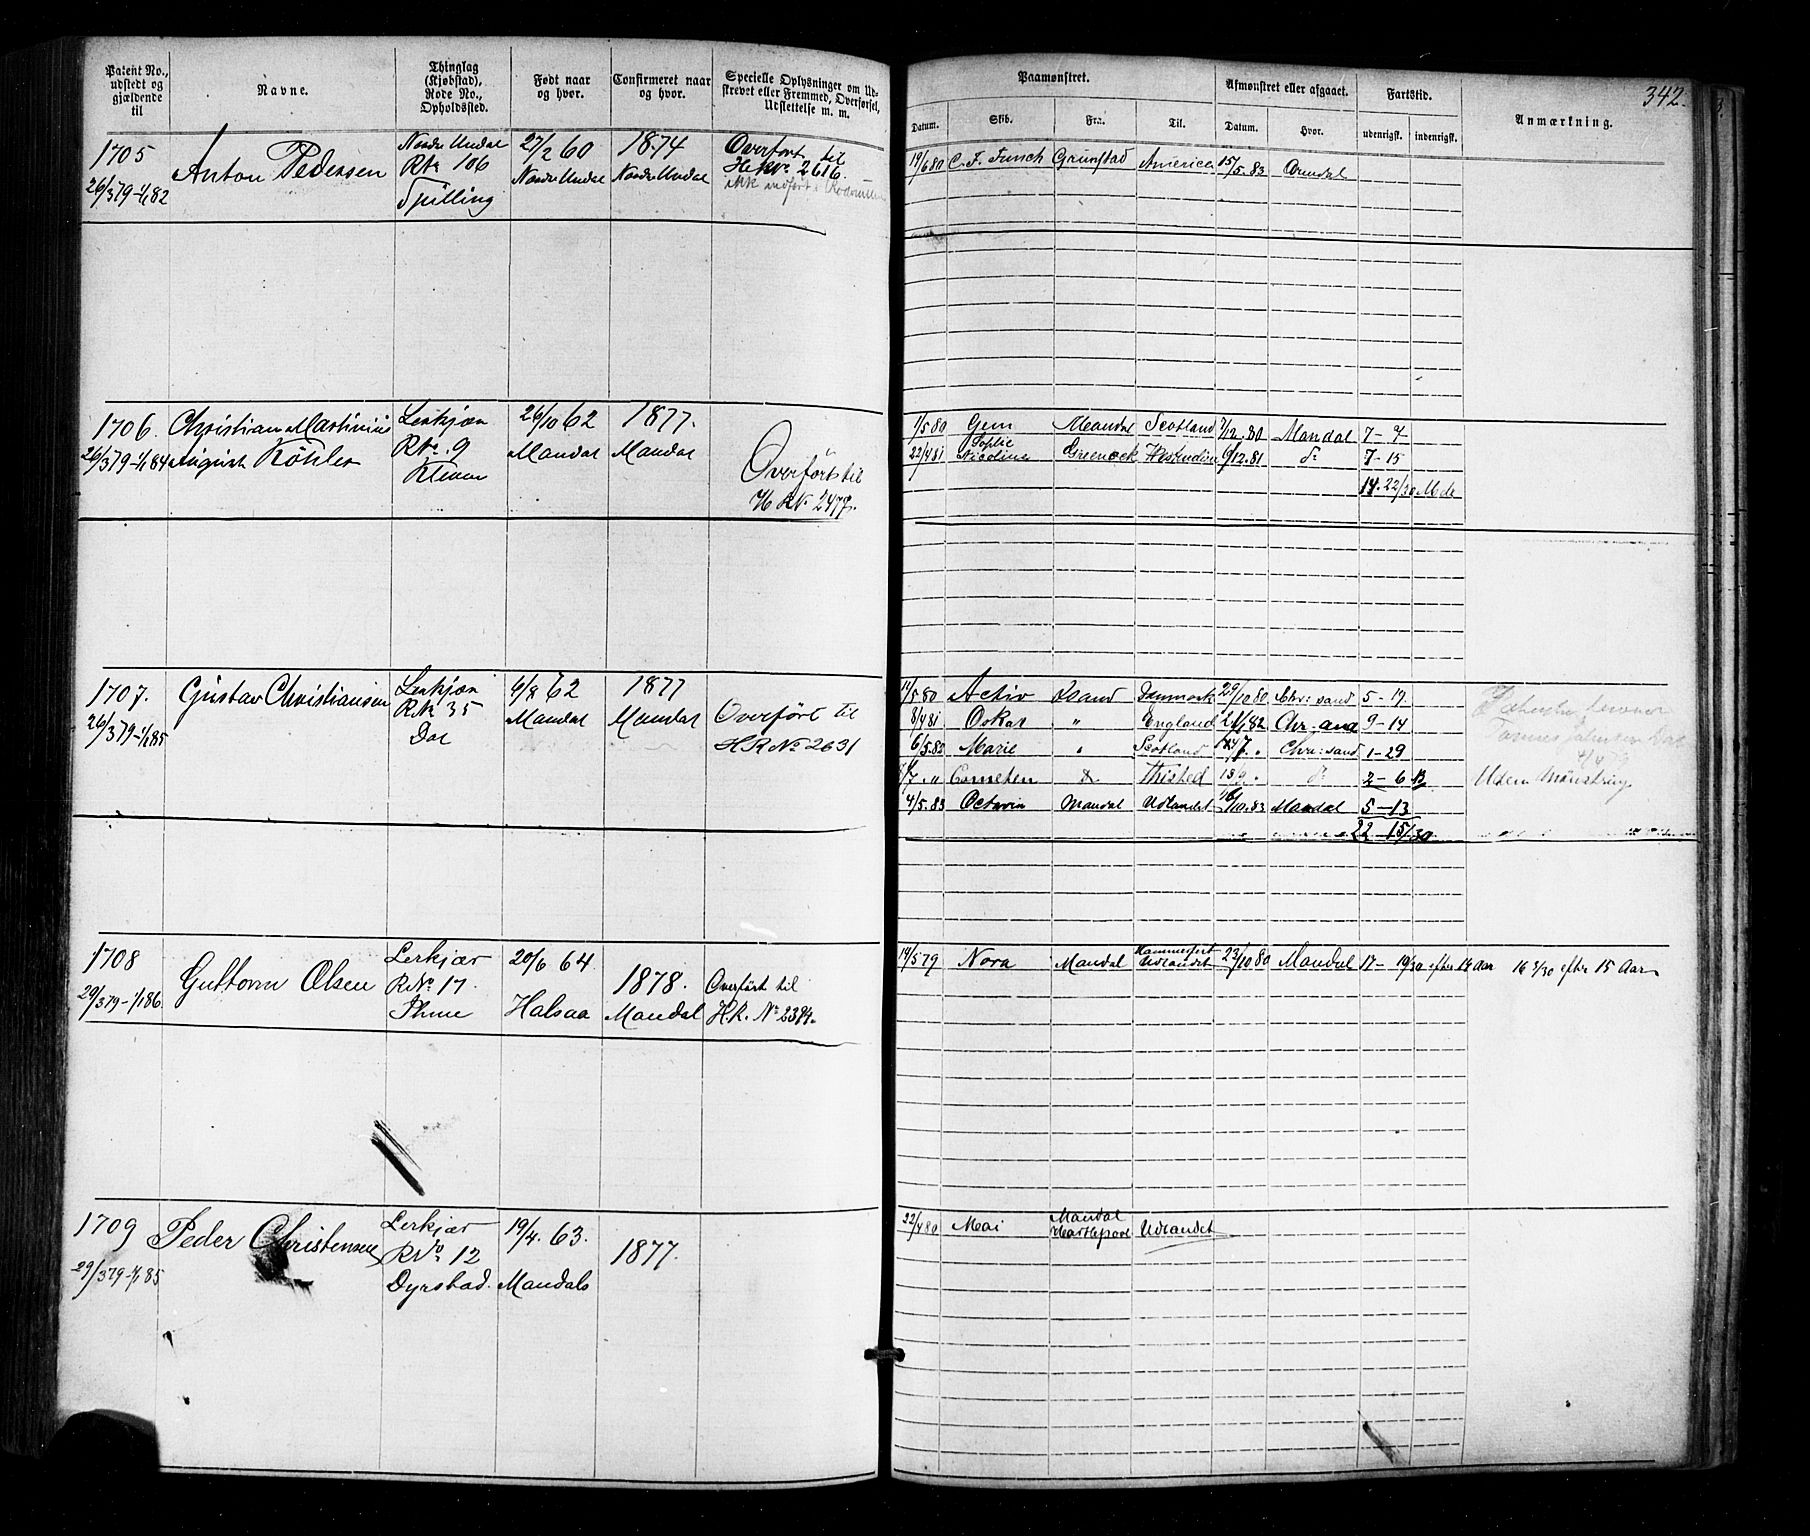 342.
Patent No., udstedt og gjældende til
Navne.
Thinglag (Kjøbstad), Rode No., Opholdssted.
Født naar og hvor.
Confirmeret naar og hvor.
Specielle Oplysninger om Udskrevet eller Fremmed, Overførsel, Udslettelse m. m.
Paamønstret.
Afmønstret eller afgaaet.
Fartstid.
Anmærkning.
Datum. Skib. Fra. Til. Datum. Hvor. udenrigsk. indenrigsk.
1705
26/3 79-1/1 82
Anton Pedersen
Nordre Undal
RNo 106
27/2 60
Nordre Undal
1874
Nordre Undal
Overfört til
HRNo. 2616.
ikke indført i
19/6 80 C. F. Funch Grimstad America 15/5.83 Arendal
1706.
26/3 79-1/1 84
Christian Martinius
August Köhler
Lerkjær
RNo. 9
Kleven
26/10 62
Mandal
1877.
Mandal
Overfört til
HRNo. 2477.
1/5 80 Gem Mandal Scotland 7/12.80 Mandal 7-7
22/4 81 Sophie Nicoline Greenock 9/12.81 do 7-15
14.22/30 Mdr
1707.
26/3 79-1/1 85
Gustav Christiansen
Lerkjær
RNo 35
Dal
6/8 62
Mandal
1877
Mandal
Overfört til
HRNo 2631
14/5 80 Activ Xsand Danmark 29/10 80 Chr:sand 5-17.
8/4 81 Oskar " England 21/1 82 Chr.and 9-14
6/5.83 Marie " Scotland Chr:sand 1-29
/7 " Cometen do Thisted 13/9 " do 2-6
4/5.83 Octavia Mandal Udlandet 16/10.83 Mandal 5-13
22-15/30
Uden Mönstring
1708
29/3 79-1/1 86.
Guttorm Olsen
Lerkjær
RNo 17.
Ihme
20/6 64
Halsaa
1878.
Mandal
Overfört til
H.R. No 2394.
14/5 79 Nora Mandal Hammerfest Udlandet 22/10 80 Mandal 17-19/30 efter 14 Aar 16 3/30 efter 15 Aar
1709
29/3 79-1/1 85
Peder Christensen
Lerkjær
RNo 12
Dyrstad.
19/4. 63.
Mandals
1877.
22/4 80 Mai Mandal Hartlepool Udlandet